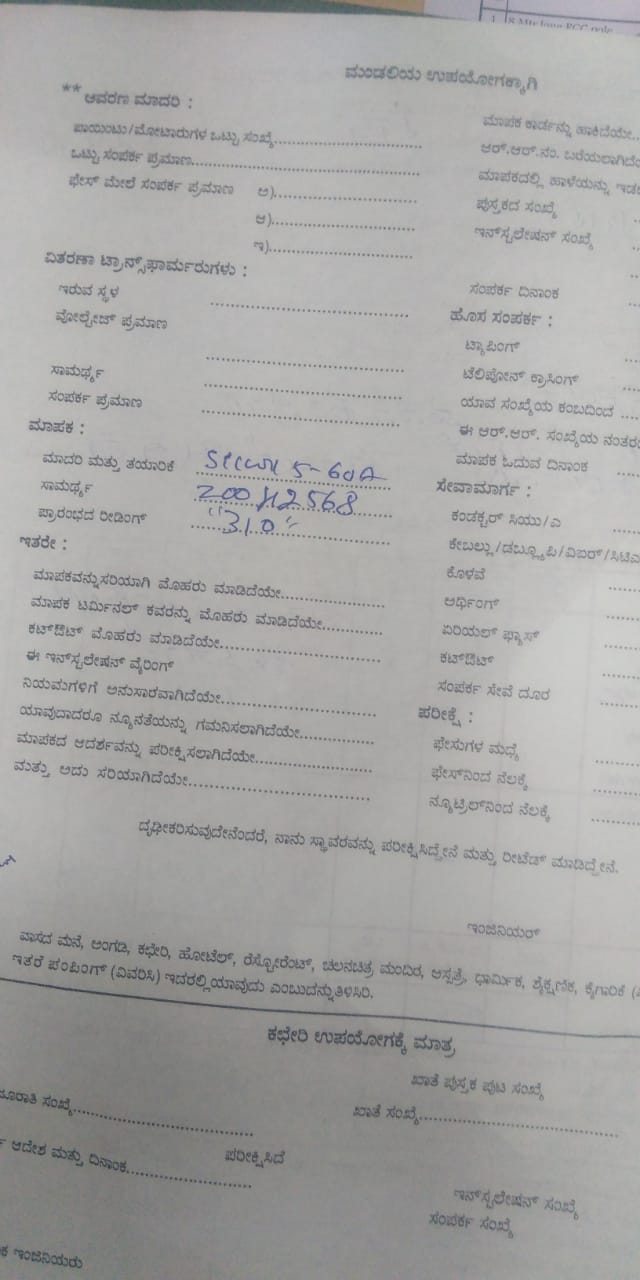 8 Mtr long RCC pole
ಮಂಡಲಿಯ ಉಪಯೋಗಕ್ಕಾಗಿ
** ಆವರಣ ಮಾದರಿ :
ಪಾಯಿಂಟು/ಮೋಟಾರುಗಳ ಒಟ್ಟು ಸಂಖ್ಯೆ
ಒಟ್ಟು ಸಂಪರ್ಕ ಪ್ರಮಾಣ
ಫೇಸ್ ಮೇಲೆ ಸಂಪರ್ಕ ಪ್ರಮಾಣ ಅ)
ಆ)
ಇ)
ವಿತರಣಾ ಟ್ರಾನ್ಸ್‌ಫಾರ್ಮರುಗಳು :
ಇರುವ ಸ್ಥಳ
ವೋಲ್ಟೇಜ್ ಪ್ರಮಾಣ
ಸಾಮರ್ಥ್ಯ
ಸಂಪರ್ಕ ಪ್ರಮಾಣ
ಮಾಪಕ :
ಮಾದರಿ ಮತ್ತು ತಯಾರಿಕೆ 5-60A
ಸಾಮರ್ಥ್ಯ
ಪ್ರಾರಂಭದ ರೀಡಿಂಗ್ "31.0"
ಇತರೇ :
ಮಾಪಕವನ್ನುಸರಿಯಾಗಿ ಮೊಹರು ಮಾಡಿದೆಯೇ
ಮಾಪಕ ಟರ್ಮಿನಲ್ ಕವರನ್ನು ಮೊಹರು ಮಾಡಿದೆಯೇ
ಕಟ್‌ಔಟ್ ಮೊಹರು ಮಾಡಿದೆಯೇ
ಈ ಇನ್‌ಸ್ಟಲೇಷನ್ ವೈರಿಂಗ್
ನಿಯಮಗಳಿಗೆ ಅನುಸಾರವಾಗಿದೆಯೇ
ಯಾವುದಾದರೂ ನ್ಯೂನತೆಯನ್ನು ಗಮನಿಸಲಾಗಿದೆಯೇ
ಮಾಪಕದ ಆದರ್ಶವನ್ನು ಪರೀಕ್ಷಿಸಲಾಗಿದೆಯೇ
ಮತ್ತು ಅದು ಸರಿಯಾಗಿದೆಯೇ
ಮಾಪಕ ಕಾರ್ಡನ್ನು ಹಾಕಿದೆಯೇ
ಆರ್.ಆರ್.ನಂ.
ಮಾಪಕದಲ್ಲಿ ಹಾಳೆಯನ್ನು
ಪುಸ್ತಕದ ಸಂಖ್ಯೆ
ಇನ್‌ಸ್ಟಲೇಷನ್ ಸಂಖ್ಯೆ
ಸಂಪರ್ಕ ದಿನಾಂಕ
ಹೊಸ ಸಂಪರ್ಕ :
ಟ್ಯಾಪಿಂಗ್
ಟೆಲಿಪೋನ್ ಕ್ರಾಸಿಂಗ್
ಯಾವ ಸಂಖ್ಯೆಯ ಕಂಬದಿಂದ
ಈ ಆರ್.ಆರ್. ಸಂಖ್ಯೆಯ
ಮಾಪಕ ಓದುವ ದಿನಾಂಕ
ಸೇವಾಮಾರ್ಗ :
ಕಂಡಕ್ಟರ್ ಸಿಯು/ಎ
ಕೇಬಲ್ಲು/ಡಬ್ಲ್ಯೂಪಿ/ವಿಐರ್/
ಕೊಳವೆ
ಅರ್ಥಿಂಗ್
ಏರಿಯಲ್ ಫ್ಯೂಸ್
ಕಟ್‌ಔಟ್
ಸಂಪರ್ಕ ಸೇವೆ ದೂರ
ಪರೀಕ್ಷೆ :
ಫೇಸುಗಳ ಮಧ್ಯೆ
ಫೇಸ್‌ನಿಂದ ನೆಲಕ್ಕೆ
ನ್ಯೂಟ್ರಲ್‌ನಿಂದ ನೆಲಕ್ಕೆ
ದೃಢೀಕರಿಸುವುದೇನೆಂದರೆ, ನಾನು ಸ್ಥಾವರವನ್ನು ಪರೀಕ್ಷಿಸಿದ್ದೇನೆ ಮತ್ತು ರೀಟೆಡ್ ಮಾಡಿದ್ದೇನೆ.
ಇಂಜಿನಿಯರ್
ವಾಸದ ಮನೆ, ಅಂಗಡಿ, ಕಛೇರಿ, ಹೋಟೆಲ್, ರೆಸ್ಟೋರೆಂಟ್, ಚಲನಚಿತ್ರ ಮಂದಿರ, ಆಸ್ಪತ್ರೆ, ಧಾರ್ಮಿಕ, ಶೈಕ್ಷಣಿಕ, ಕೈಗಾರಿಕೆ
ಇತರೆ ಪಂಪಿಂಗ್ (ವಿವರಿಸಿ) ಇದರಲ್ಲಿಯಾವುದು ಎಂಬುದನ್ನುತಿಳಿಸಿರಿ.
ಕಛೇರಿ ಉಪಯೋಗಕ್ಕೆ ಮಾತ್ರ
ಖಾತೆ ಪುಸ್ತಕ ಪುಟ ಸಂಖ್ಯೆ
ಖಾತೆ ಸಂಖ್ಯೆ
ಸಂಖ್ಯೆ
ಆದೇಶ ಮತ್ತು ದಿನಾಂಕ
ಪರೀಕ್ಷಿಸಿದೆ
ಇನ್‌ಸ್ಟಲೇಷನ್ ಸಂಖ್ಯೆ
ಸಂಪರ್ಕ ಸಂಖ್ಯೆ
ಇಂಜಿನಿಯರು